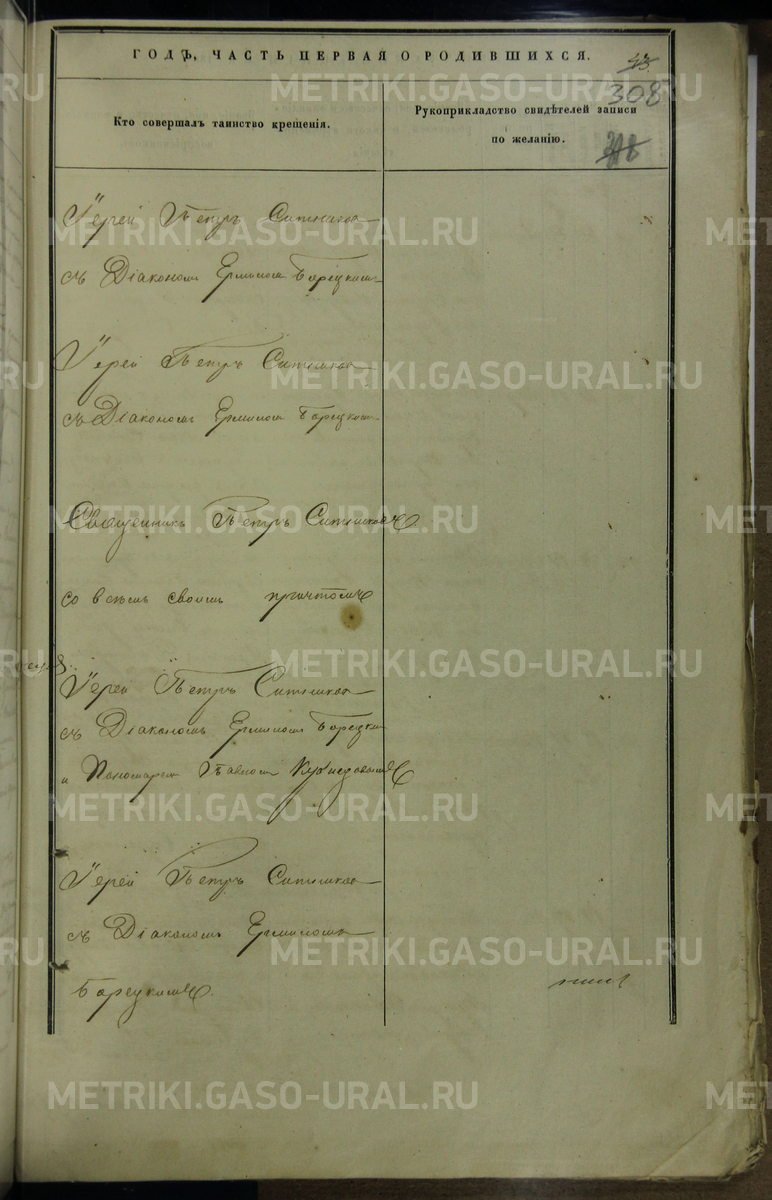 ГОДЪ, ЧАСТЬ ПЕРВАЯ О РОДИВШИХСЯ.
43
308
Кто совершалъ таинство крещенія.
Рукоприкладство свидѣтелей записи
по желанію.
Іерей Петръ Ситников
съ Діакономъ Ермиломъ Борецкимъ
Іерей Петръ Ситников
съ Діакономъ Ермиломъ Борецкимъ
Священникъ Петръ Ситниковъ
со всѣмъ своимъ причтомъ
Іерей Петръ Ситников
съ Діакономъ Ермиломъ Борецким
и Пономаремъ Павломъ
Іерей Петръ Ситников
съ Діакономъ Ермиломъ
Борецкимъ.
METRIKI.GASO-URAL.RU